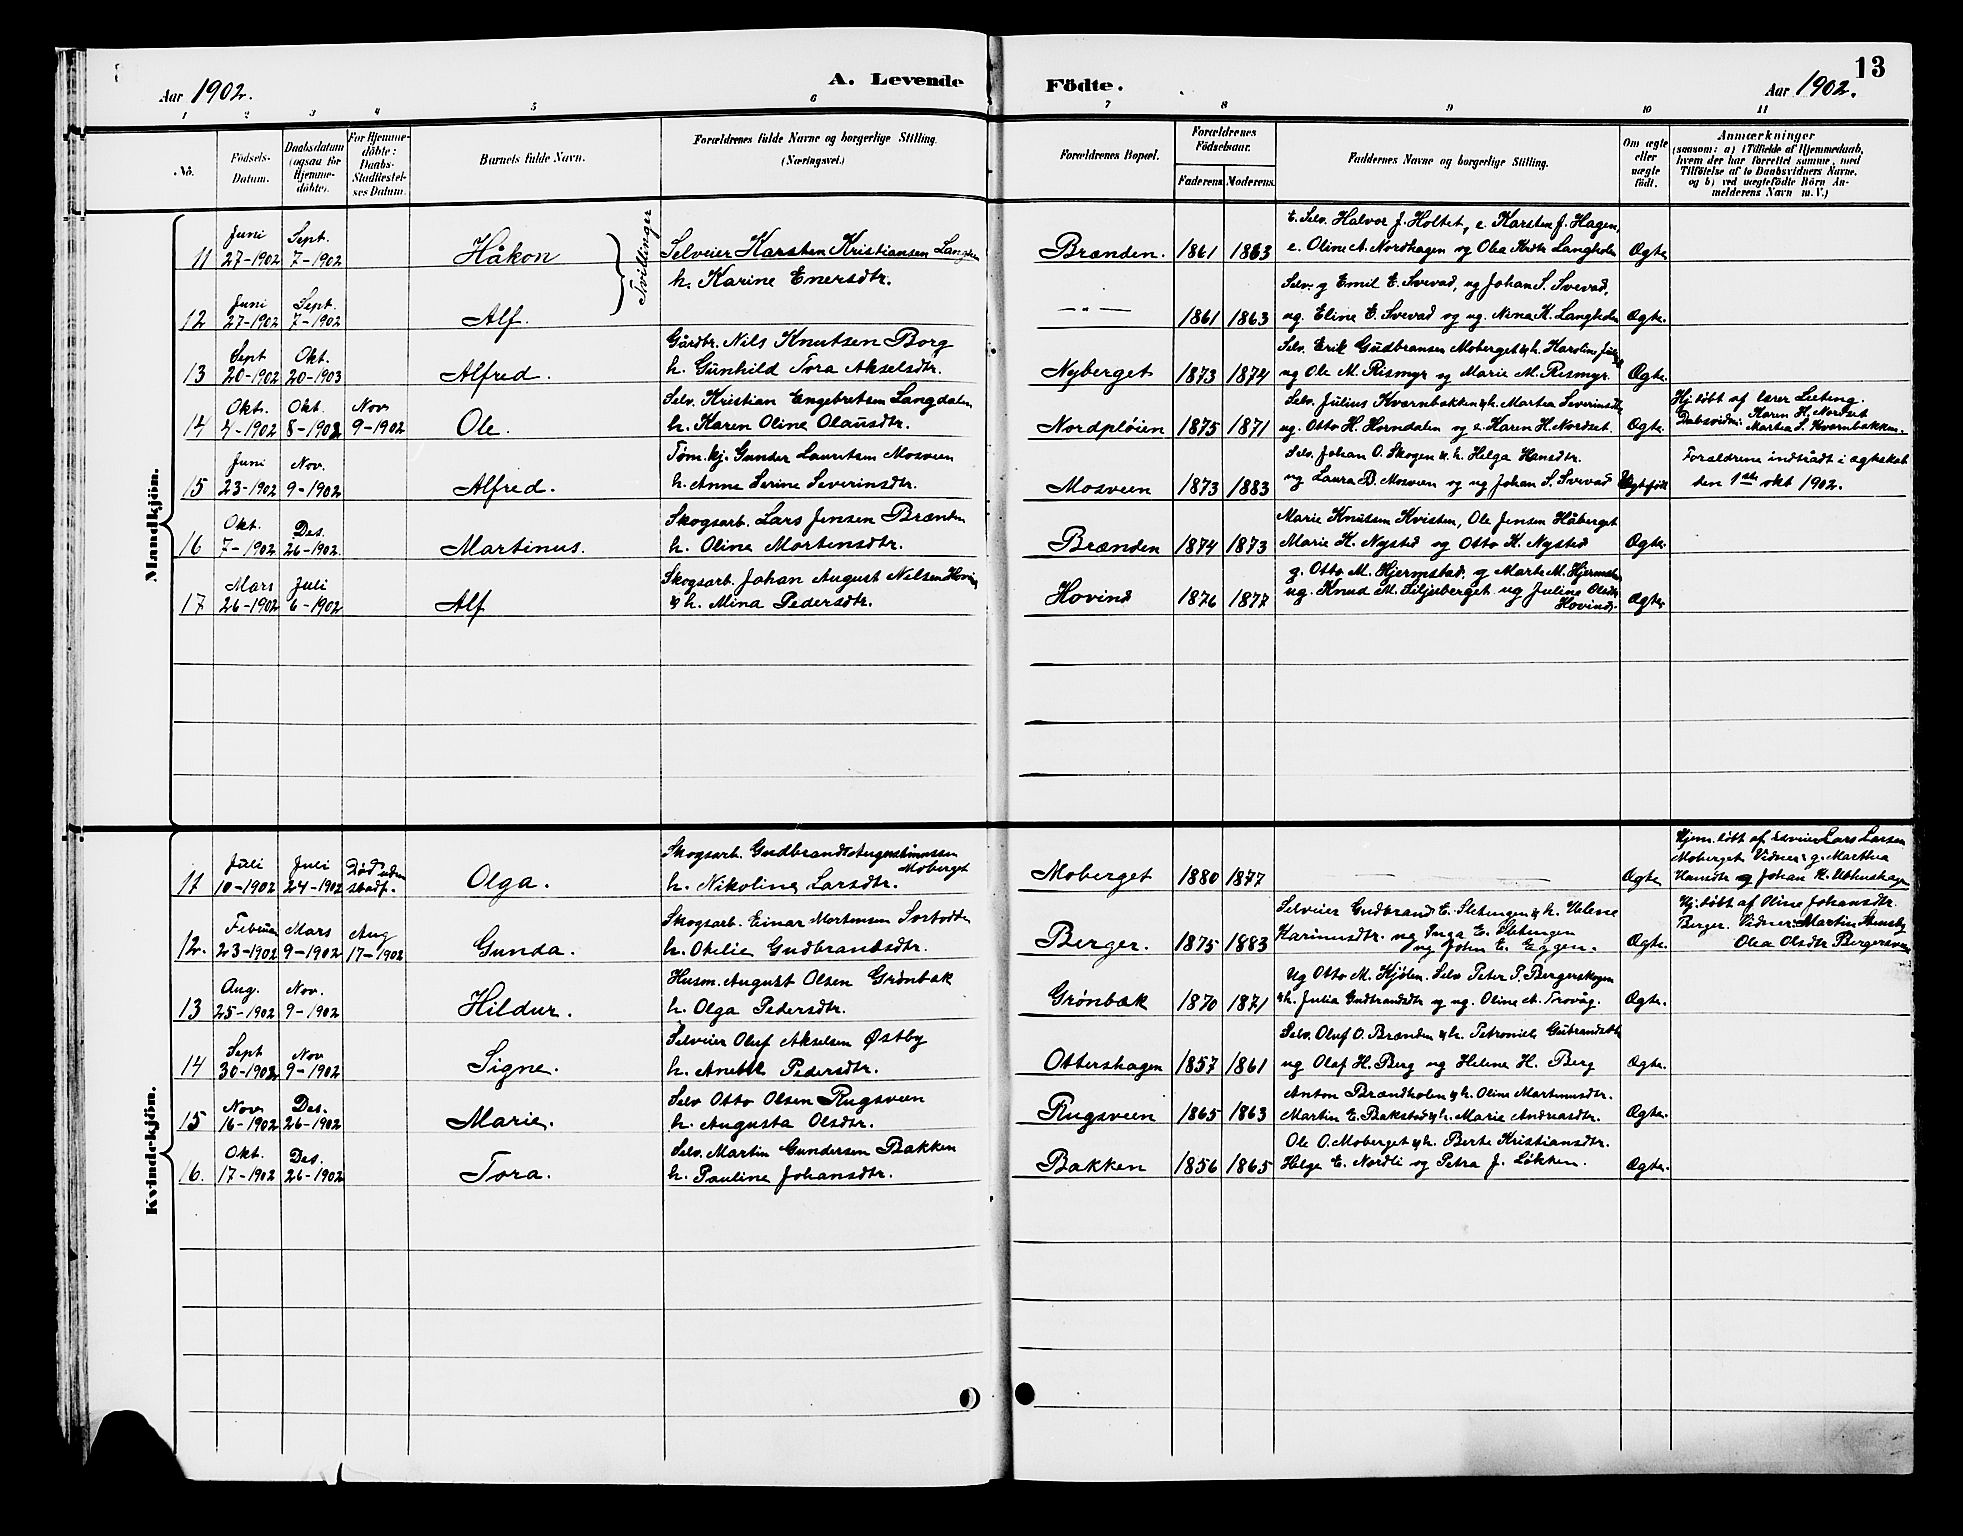 Aar 1902.
A. Levende
Födte.
Aar 1902.
13
1 2 3 4 5 6 7 8 9 10 11
No.
Födsels-
Datum.
Daabsdatum
(ogsaa for
Hjemme-
döbte).
For Hjemme-
döbte:
Daabs-
Stadfæstel-
ses Datum.
Barnets fulde Navn.
Forældrenes fulde Navne og borgerlige Stilling.
(Næringsvei.)
Forældrenes Bopæl.
Forældrenes
Födselsaar.
Faderens Moderens.
Faddernes Navne og borgerlige Stilling.
Om ægte
eller
uægte
født.
Anmærkninger
(saasom: a) i Tilfælde af Hjemmedaab,
hvem der har forrettet samme, med
Tilföielse af to Daabsvidners Navne,
og b) ved uægtefödte Börn An-
melderens Navn m. V.)
Mandkjön.
11 Juni 27-1902 Sept. 7-1902 Håkon Tvillinger
Selveier Karsten Kristiansen
h. Karine Enersdtr.
Brænden. 1861 1863
E. Selv. Halvor J. Holtet, e. Karsten J. Hagen,
e. Oline A. Nordhagen og Olea Langholen
Ægte
12 Juni 27-1902 Sept. 7-1902 Alf.
— " — 1861 1863
Selv. g Emil E. Svevad, ug Johan S. Svevad,
ug. Eline E. Svevad og ug. Nina K.
Ægte.
13 Sept 20-1902 Okt. 20-1903 Alfred.
Gårdbr. Nils Knutsen Borg
h. Gunhild Tora Akselsdtr.
Nyberget 1873 1874
Selv. Erik Gudbransen Moberget & h. Karoline
ug Ole M. Rismyr og Marie M. Rismyr.
Ægte.
14 Okt. 4-1902 Okt. 8-1902 Nov 9-1902 Ole.
Selv. Kristian Engebretsen Langdalen
h. Karen Oline Olausdtr.
Nordpløien 1875 1871
Selv. Julius Kvernbakken & h. Martea Severinsdtr
ug. Otto H. Horndalen og e. Karen H. Nordset.
Ægte
Hj. døbt af lærer
Karen H. Nordset
Dabsvidn: Martea S. Kvernbakken.
15 Juni 23-1902 Nov. 9-1902 Alfred.
Tøm.kj. Gunder Lauritsen Mosveen
h. Anne Serine Severinsdtr.
Mosveen 1873 1883
Selv. Johan O. Skogen & h. Helga Hansdtr.
ug Laura B. Mosveen og ug Johan S. Svevad
Forældrene indtrådt i ægteskab
den 1ste okt 1902.
16 Okt. 7-1902 Des. 26-1902 Martinus.
Skogsarb. Lars Jensen Brænden
h. Oline Mortensdtr.
Brænden 1874 1873
Marie Knutsen Kvisten, Ole Jensen Håberget
Marie K. Nysted og Otto K. Nysted
Ægte.
17 Mars 26-1902 Juli 6-1902 Alf
Skogsarb. Johan August Nilsen Hovin
& h. Mina Pedersdtr.
Hovind 1876 1877
g. Otto M. Hjermstad. g Marte M. Hjermstad
ug. Knud M. Siljuberget ug Juline Olsdtr
Hovind.
Ægte
Kvindekjön.
17 Juli 10-1902 Juli 24-1902 Død uden stadf. Olga.
Skogsarb. Gudbrand
Moberget
h. Nikoline Larsdtr.
Moberget 1880 1877
— — —
Ægte
Hjem. døbt af Lars Larsen
Moberget Vidner: g. Marthea
Hansdtr g Johan K.
12. Februar 23-1902 Mars 9-1902 Aug 17-1902 Gunda.
Skogsarb. Einar Mortensen
h. Otelie Gudbrandsdtr.
Berger. 1875 1883
Selveier Gudbrand E. Sletengen & h. Helene
Karinusdtr. ug Inga E. Sletengen
ug John E. Eggen.
Ægte.
Hj. døbt af Oline Johansdtr.
Berger. Vidner: Martin
Olea Olsdtr Bergersveen
13 Aug. 25-1902 Nov. 9-1902 Hildur.
Husm. August Olsen Grønbæk
h. Olga Pedersdtr.
Grønbæk 1870 1871
Ug Otto M. Kjølen. Selv Peter P. Bergerskogen
& h. Julia Gudbrandsdtr og ug. Oline A.
Ægte.
14 Sept 30-1902 Nov 9-1902 Signe.
Selveier Oluf Akselsen Østby
h. Anette Pedersdtr.
Ottershagen 1857 1861
Selv. Oluf O. Brænden & h. Petronille Gubrandsdtr
ug Olaf H. Berg ug Helene H. Berg
Ægte.
15 Nov. 16-1902 Des. 26-1902 Marie.
Selv Otto Olsen Rugsveen
h. Augusta Olsdtr.
Rugsveen 1865 1863
Anton Brændholen & h. Oline Martinusdtr.
Martin E. Bakstad & h. Marie Andreasdtr.
Ægte.
16. Okt. 17-1902 Des. 26-1902 Tora.
Selv. Martin Gundersen Bakken
h. Pauline Johansdtr.
Bakken 1856 1865
Ole O. Moberget & h. Berte Kristiansdtr.
Helge E. Nordli og Petra J. Løkken.
Ægte.